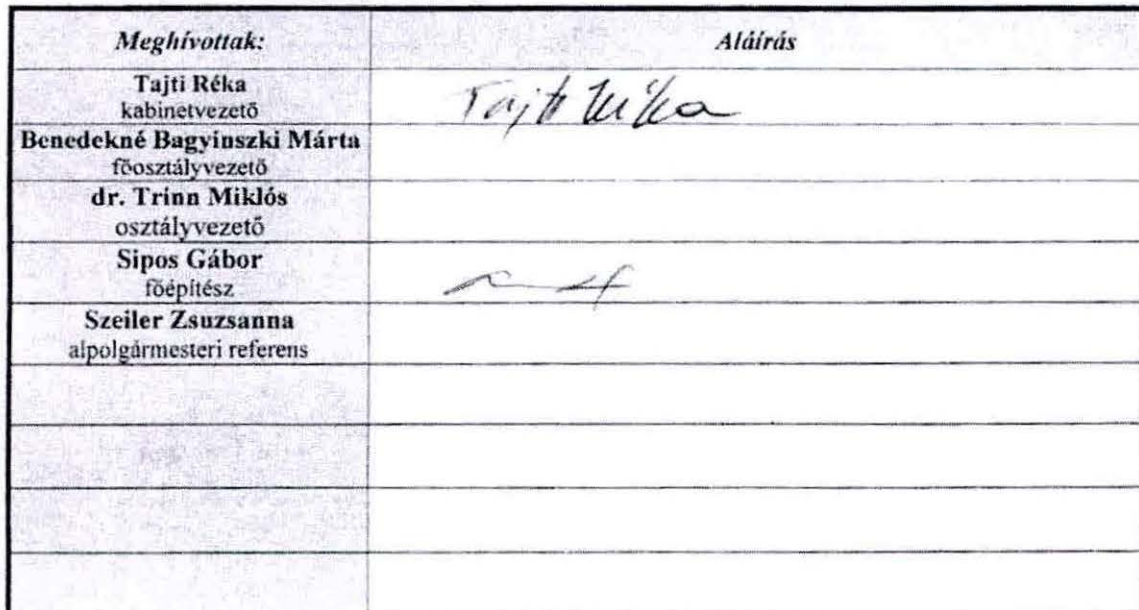 Meghívottak: Aláírás
Tajti Réka
kabinetvezető
Tajti Réka
Benedekné Bagyinszki Márta
főosztályvezető
dr. Trinn Miklós
osztályvezető
Sipos Gábor
főépítész
Szeiler Zsuzsanna
alpolgármesteri referens